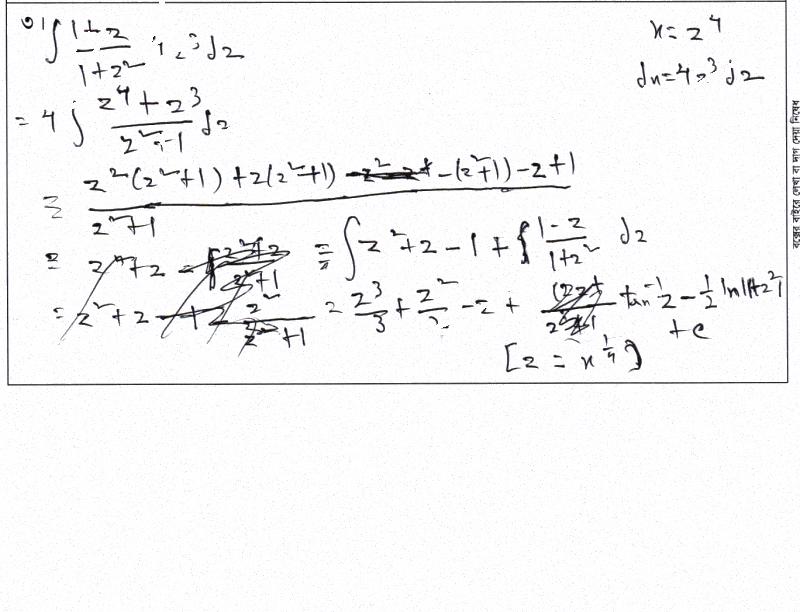 ৩। ∫ (1+z)/(1+z²) · 4z³ dz
x = z⁴
dx = 4z³ dz
= 4 ∫ (z⁴ + z³)/(z²+1) dz
= (z²(z²+1) + z(z²+1) - (z²+1) - z + 1)/(z²+1)
= ∫ z² + z - 1 + ∫ (1-z)/(1+z²) dz
= z³/3 + z²/2 - z + tan⁻¹z - ½ ln|1+z²| + c
[z = x^¼]
বক্সের বাইরে লেখা বা দাগ দেয়া নিষেধ